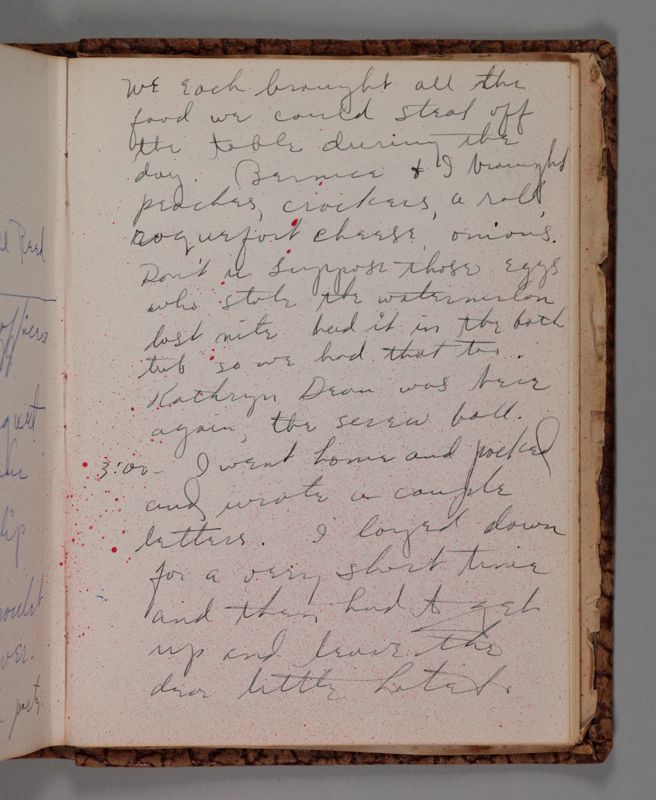 We each brought all the
food we could steal off
the table during the
day. Bernice & I brought
peaches, crackers, a roll,
roquefort cheese, onions.
Don't u suppose those eggs
who stole the watermelon
last nite had it in the bath
tub so we had that too.
Kathryn Dean was here
again, the screw ball.
3:00 - I went home and packed
and wrote a couple
letters. I layed down
for a very short time
and then had to get
up and leave the
dear little hotel.
Reed